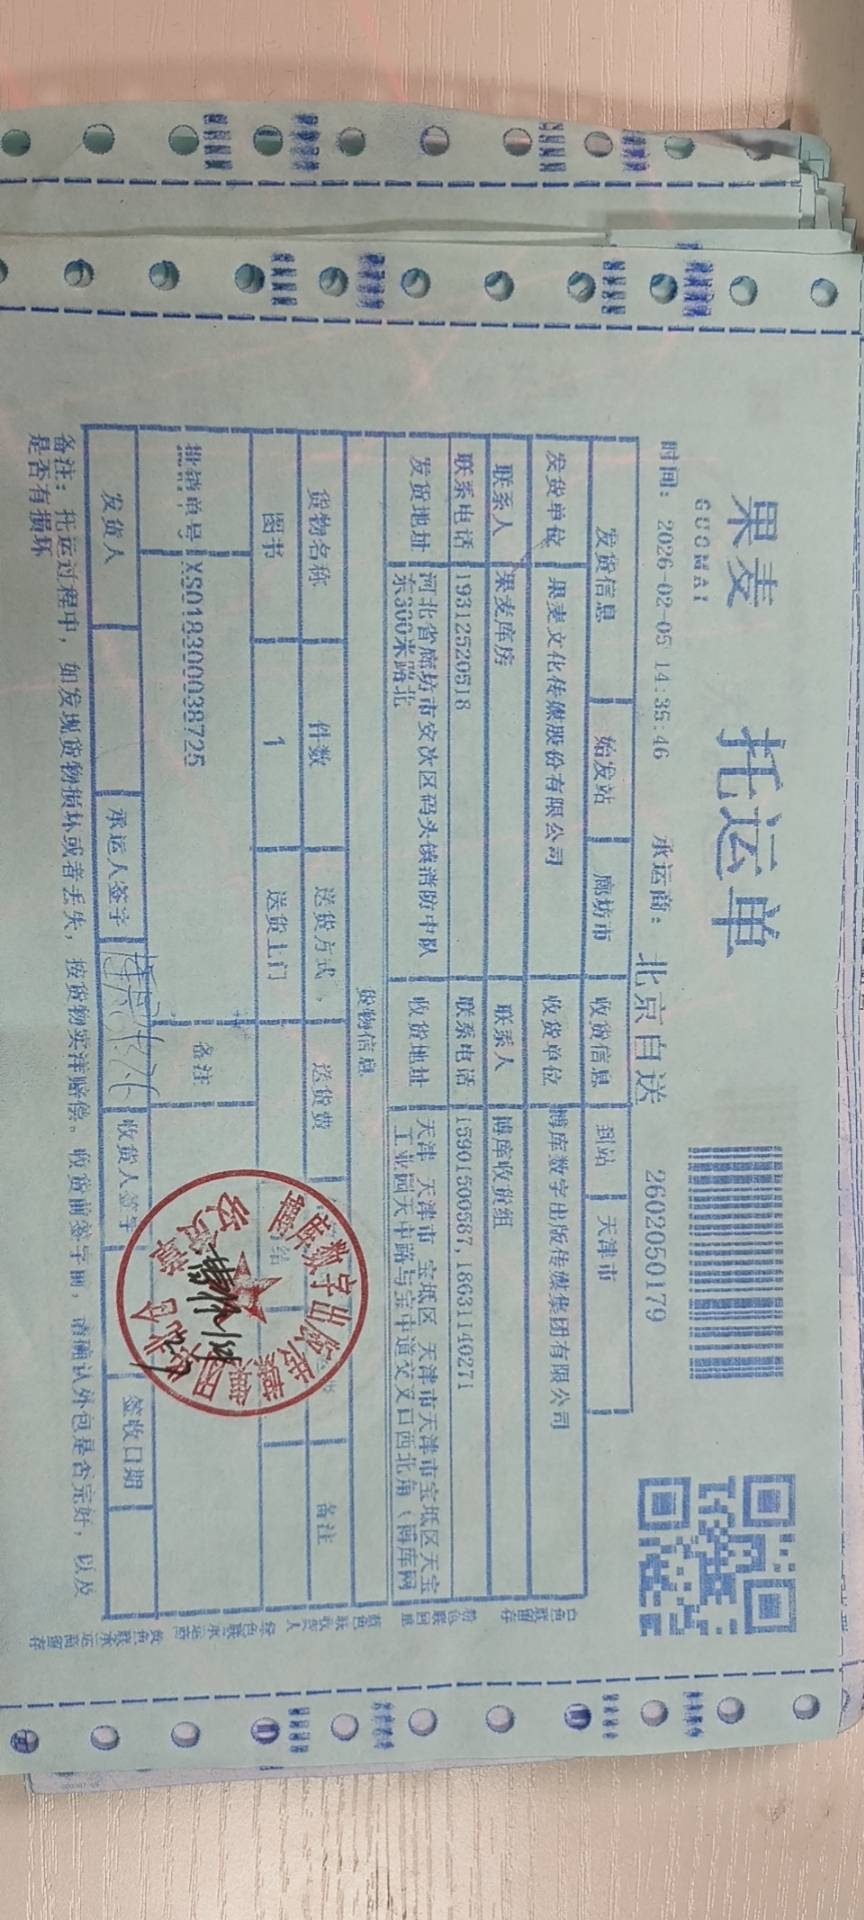 果麦
GUOMAI
托运单
时间：2026-02-05 14:35:46 承运商：北京自送 2602050179
发货信息 始发站 廊坊市 收货信息 到站 天津市
发货单位 果麦文化传媒股份有限公司 收货单位 博库数字出版传媒集团有限公司
联系人 果麦库房 联系人 博库收货组
联系电话 19312520518 联系电话 15901500587,18631140271
发货地址 河北省廊坊市安次区码头镇消防中队东300米路北 收货地址 天津 天津市 宝坻区 天津市天津市宝坻区天宝工业园天中路与宝中道交叉口西北角（博库网
货物信息
货物名称 件数 送货方式 送货费 备注
图书 1 送货上门
批销单号 XS018300038725 备注
发货人 承运人签字 收货人签字 签收日期
备注：托运过程中，如发现货物损坏或者丢失，按货物实洋赔偿。收货前签字前，请确认外包是否完好，以及
是否有损坏
白色联留存
粉色联回单
蓝色联收货人
绿色联承运商
黄色联承运商留存